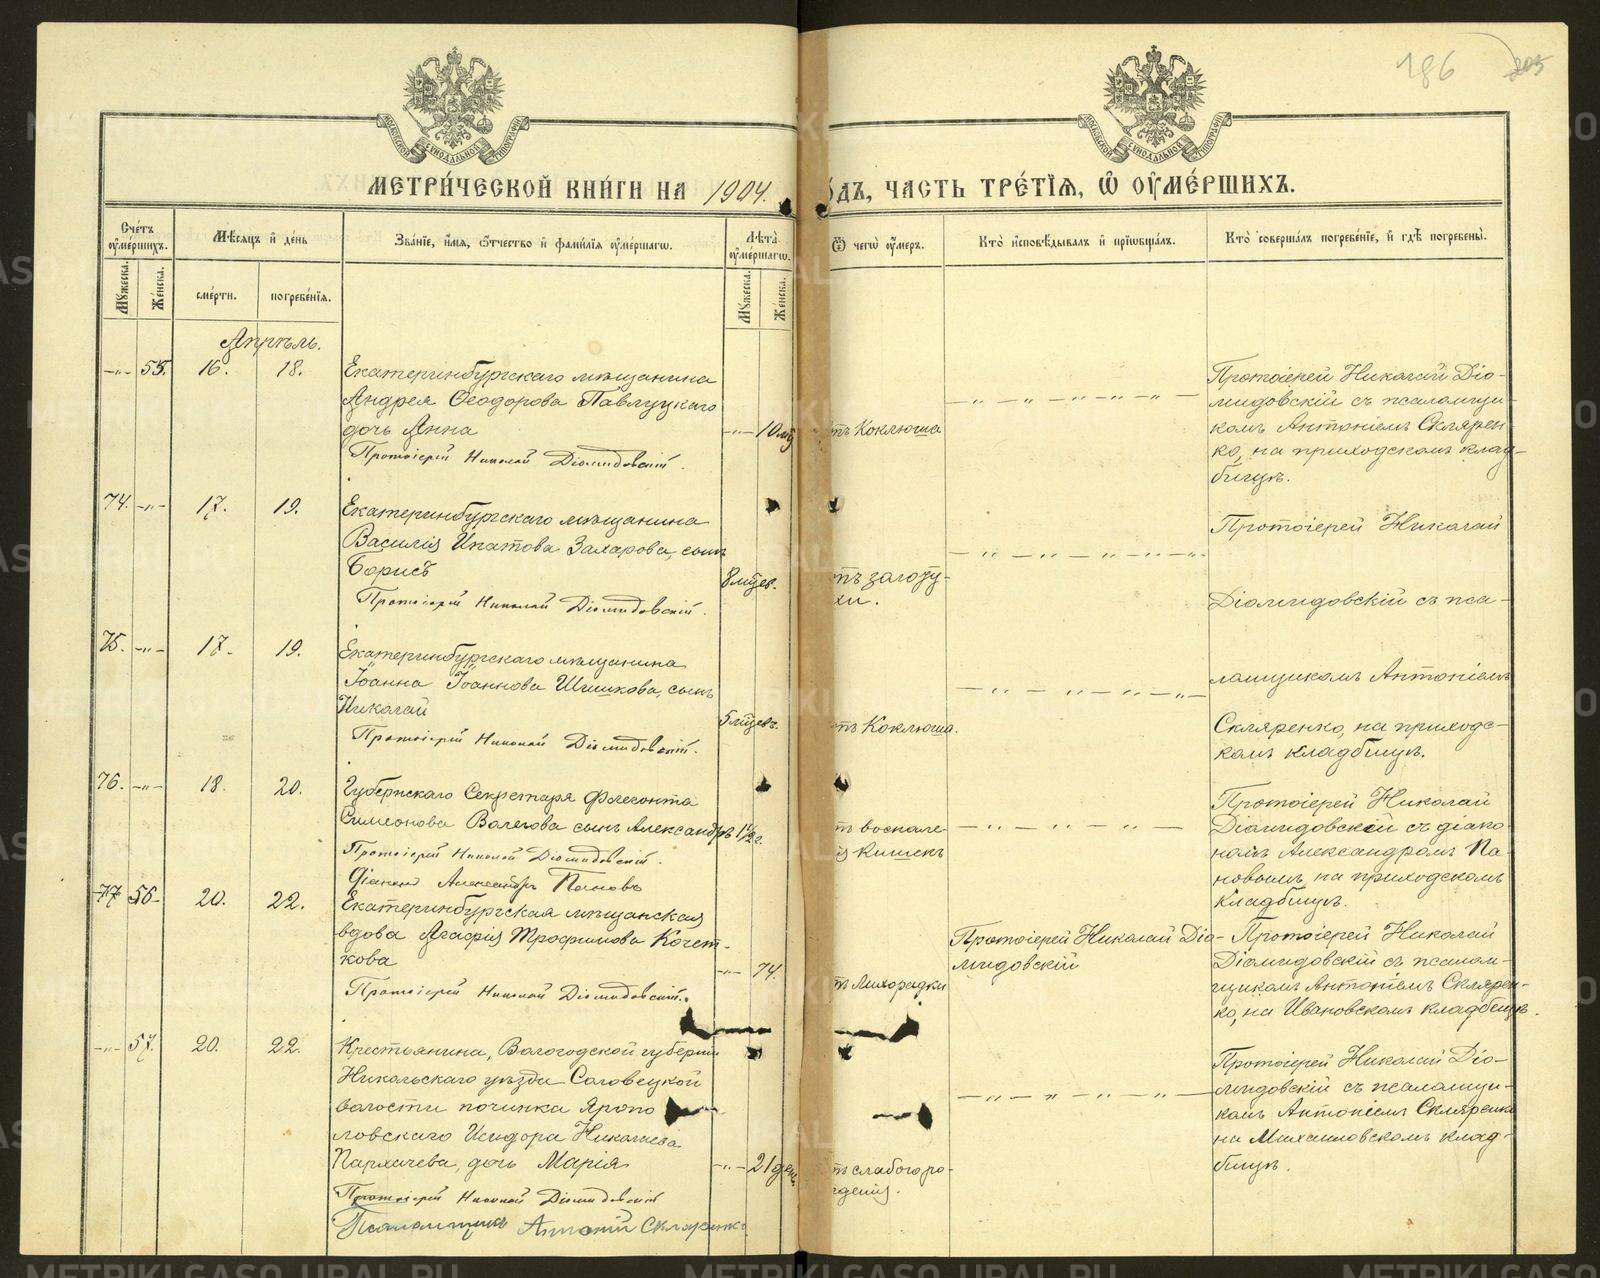 186 205
МОСКОВСКОЙ СѴНОДАЛЬНОЙ ТИПОГРАФІИ
МОСКОВСКОЙ СѴНОДАЛЬНОЙ ТИПОГРАФІИ
МЕТРИ́ЧЕСКОЙ КНИ́ГИ НА 1904.
ГО́ДЪ, ЧАСТЬ ТРЕ́ТІѦ, Ѡ҆ ОУ҆МЕ́РШИХЪ.
Сче́тъ оу҆ме́ршихъ.
Мѣ́сяцъ и҆ де́нь
Зва́нїе, и҆́мя, ѻ҆́тчество и҆ фами́лїя оу҆ме́ршагѡ.
Лѣ́та оу҆ме́ршагѡ.
Ѿ чегѡ̀ оу҆́меръ.
Кто̀ и҆сповѣ́дывалъ и҆ прїѡбща́лъ.
Кто̀ соверша́лъ погребе́нїе, и҆ гдѣ̀ погребены̀.
Мꙋ́жеска.
Же́нска.
сме́рти.
погребе́нїя.
Мꙋ́жеска.
Же́нска.
Апрѣль.
-"- 55. 16. 18.
Екатеринбургскаго мѣщанина
Андрея Ѳеодорова Павлуцкаго
дочь Анна
Протоіерей Николай Діомидовскій.
-"- 10 мц
тъ Коклюша
Протоіерей Николай Діо-
мидовскій съ псаломщи-
комъ Антоніемъ Скляреn-
ко, на приходскомъ клад-
бищѣ.
74. -"- 17. 19.
Екатеринбургскаго мѣщанина
Василія Ипатова Захарова, сынъ
Борисъ
Протоіерей Николай Діомидовскій.
8 мцев.
тъ золоту-
хи.
Протоіерей Николай
Діомидовскій съ пса-
75. -"- 17. 19.
Екатеринбургскаго мѣщанина
Іоанна Іоаннова Шишкова, сынъ
Николай
Протоіерей Николай Діомидовскій.
5 мцевъ.
тъ Коклюша.
ломщикомъ Антоніемъ
Скляренко, на приходс-
комъ кладбищѣ.
76. -"- 18. 20.
Губернскаго Секретаря Флегонта
Симеонова Волегова сынъ Александръ 1 1/2 г.
Протоіерей Николай Діомидовскій.
Діаконъ Александръ Пановъ
тъ воспале-
ія кишекъ
Протоіерей Николай
Діомидовскій съ діако-
номъ Александромъ Па-
новымъ, на приходскомъ
кладбищѣ.
77 56. 20. 22.
Екатеринбургская мѣщанская
вдова Агафія Трофимова Кочет-
кова
Протоіерей Николай Діомидовскій.
-"- 74.
тъ Лихорадки
Протоіерей Николай Діо-
мидовскій
Протоіерей Николай
Діомидовскій съ псалом-
щикомъ Антоніемъ Скляреn-
ко, на Ивановскомъ кладбищѣ.
-"- 57. 20. 22.
Крестьянина, Вологодской губерніи
Никольскаго уѣзда Соловецкой
волости починка Яропо
ловскаго Исидора Николаева
Пархачева, дочь Марія
Протоіерей Николай Діомидовскій
Псаломщикъ Антоній Скляренко
-"- 21 день
тъ слабого ро-
жденія.
Протоіерей Николай Діо-
мидовскій съ псаломщи-
комъ Антоніемъ Скляренко
на Михайловскомъ клад-
бищѣ.
METRIKI.GASO-URAL.RU